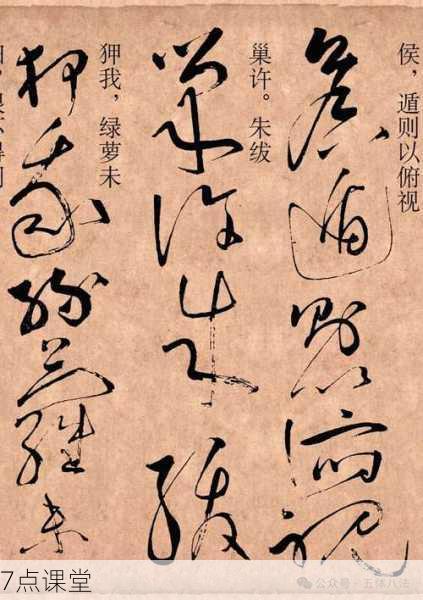 侯，遁则以俯视
侯遁則以俯視
巢许。朱绂
巢許朱紱
狎我，绿萝未
狎我綠蘿未
7点课堂
公众号·五体八法